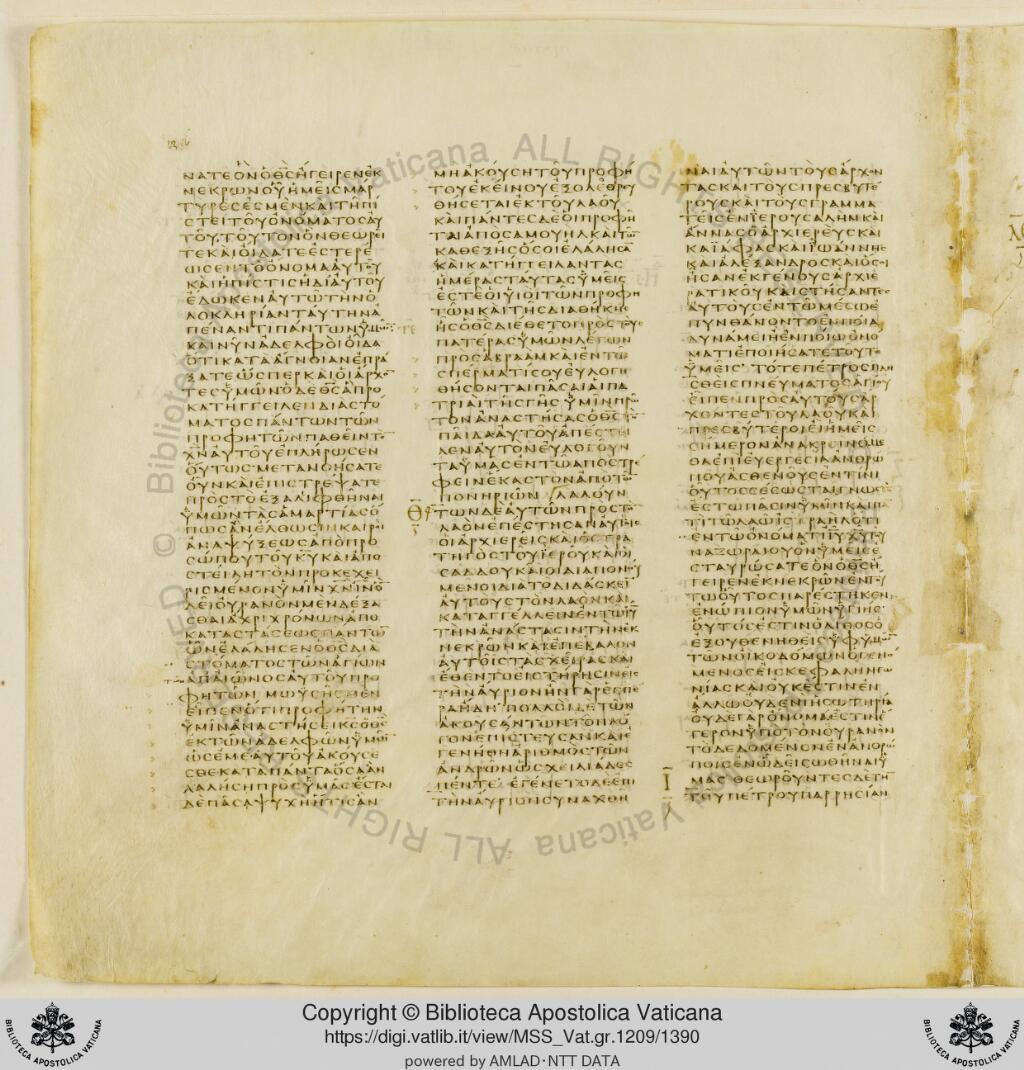 ΝΑΤΕΟΝΟΘ̅Ϲ̅ΗΓΕΙΡΕΝΕΚ
ΝΕΚΡΩΝΟΥΗΜΕΙϹΜΑΡ
ΤΥΡΕϹΕϹΜΕΝΚΑΙΤΗΠΙ
ϹΤΕΙΤΟΥΟΝΟΜΑΤΟϹΑΥ
ΤΟΥΤΟΥΤΟΝΟΝΘΕΩΡΕΙ
ΤΕΚΑΙΟΙΔΑΤΕΕϹΤΕΡΕ
ΩϹΕΝΤΟΟΝΟΜΑΑΥΤΟΥ
ΚΑΙΗΠΙϹΤΙϹΗΔΙΑΥΤΟΥ
ΕΔΩΚΕΝΑΥΤΩΤΗΝΟ
ΛΟΚΛΗΡΙΑΝΤΑΥΤΗΝΑ
ΠΕΝΑΝΤΙΠΑΝΤΩΝΥΜΩ̅
ΚΑΙΝΥΝΑΔΕΛΦΟΙΟΙΔΑ
ΟΤΙΚΑΤΑΑΓΝΟΙΑΝΕΠΡΑ
ΞΑΤΕΩϹΠΕΡΚΑΙΟΙΑΡΧΟ̅
ΤΕϹΥΜΩΝΟΔΕΘ̅Ϲ̅ΑΠΡΟ
ΚΑΤΗΓΓΕΙΛΕΝΔΙΑϹΤΟ
ΜΑΤΟϹΠΑΝΤΩΝΤΩΝ
ΠΡΟΦΗΤΩΝΠΑΘΕΙΝΤΟ̅
Χ̅Ν̅ΑΥΤΟΥΕΠΛΗΡΩϹΕΝ
ΟΥΤΩϹΜΕΤΑΝΟΗϹΑΤΕ
ΟΥΝΚΑΙΕΠΙϹΤΡΕΨΑΤΕ
ΠΡΟϹΤΟΕΞΑΛΙΦΘΗΝΑΙ
ΥΜΩΝΤΑϹΑΜΑΡΤΙΑϹΟ
ΠΩϹΑΝΕΛΘΩϹΙΝΚΑΙΡΟΙ
ΑΝΑΨΥΞΕΩϹΑΠΟΠΡΟ
ϹΩΠΟΥΤΟΥΚ̅Υ̅ΚΑΙΑΠΟ
ϹΤΕΙΛΗΤΟΝΠΡΟΚΕΧΕΙ
ΡΙϹΜΕΝΟΝΥΜΙΝΧ̅Ν̅Ι̅Ν̅Ο̅
ΔΕΙΟΥΡΑΝΟΝΜΕΝΔΕΞΑ
ϹΘΑΙΑΧΡΙΧΡΟΝΩΝΑΠΟ
ΚΑΤΑϹΤΑϹΕΩϹΠΑΝΤΩ̅
ΩΝΕΛΑΛΗϹΕΝΟΘ̅Ϲ̅ΔΙΑ
ϹΤΟΜΑΤΟϹΤΩΝΑΓΙΩΝ
ΑΠΑΙΩΝΟϹΑΥΤΟΥΠΡΟ
ΦΗΤΩΝ ΜΩΥϹΗϹΜΕΝ
ΕΙΠΕΝΟΤΙΠΡΟΦΗΤΗΝ
ΥΜΙΝΑΝΑϹΤΗϹΕΙΚ̅Ϲ̅ΟΘ̅Ϲ̅
ΕΚΤΩΝΑΔΕΛΦΩΝΥΜΩ̅
ΩϹΕΜΕΑΥΤΟΥΑΚΟΥϹΕ
ϹΘΕΚΑΤΑΠΑΝΤΑΟϹΑΑΝ
ΛΑΛΗϹΗΠΡΟϹΥΜΑϹΕϹΤΑΙ
ΔΕΠΑϹΑΨΥΧΗΗΤΙϹΑΝ
ΜΗΑΚΟΥϹΗΤΟΥΠΡΟΦΗ
ΤΟΥΕΚΕΙΝΟΥΕΞΟΛΕΘΡΕΥ
ΘΗϹΕΤΑΙΕΚΤΟΥΛΑΟΥ
ΚΑΙΠΑΝΤΕϹΔΕΟΙΠΡΟΦΗ
ΤΑΙΑΠΟϹΑΜΟΥΗΛΚΑΙΤΩ̅
ΚΑΘΕΞΗϹΟϹΟΙΕΛΑΛΗϹΑ̅
ΚΑΙΚΑΤΗΓΓΕΙΛΑΝΤΑϹ
ΗΜΕΡΑϹΤΑΥΤΑϹΥΜΕΙϹ
ΕϹΤΕΟΙΥΙΟΙΤΩΝΠΡΟΦΗ
ΤΩΝΚΑΙΤΗϹΔΙΑΘΗΚΗϹ
ΗϹΟΘ̅Ϲ̅ΔΙΕΘΕΤΟΠΡΟϹΤΟΥϹ
ΠΑΤΕΡΑϹΥΜΩΝΛΕΓΩΝ
ΠΡΟϹΑΒΡΑΑΜΚΑΙΕΝΤΩ
ϹΠΕΡΜΑΤΙϹΟΥΕΥΛΟΓΗ
ΘΗϹΟΝΤΑΙΠΑϹΑΙΑΙΠΑ
ΤΡΙΑΙΤΗϹΓΗϹΥΜΙΝΠΡΩ
ΤΟΝΑΝΑϹΤΗϹΑϹΟΘ̅Ϲ̅ΤΟ̅
ΠΑΙΔΑΑΥΤΟΥΑΠΕϹΤΕΙ
ΛΕΝΑΥΤΟΝΕΥΛΟΓΟΥΝ
ΤΑΥΜΑϹΕΝΤΩΑΠΟϹΤΡΕ
ΦΕΙΝΕΚΑϹΤΟΝΑΠΟΤΩ̅
ΠΟΝΗΡΙΩΝ ΛΑΛΟΥΝ
ΤΩΝΔΕΑΥΤΩΝΠΡΟϹΤΟ̅
ΛΑΟΝΕΠΕϹΤΗϹΑΝΑΥΤΟΙϹ
ΟΙΑΡΧΙΕΡΕΙϹΚΑΙΟϹΤΡΑ
ΤΗΓΟϹΤΟΥΙΕΡΟΥΚΑΙΟΙ
ϹΑΔΔΟΥΚΑΙΟΙΔΙΑΠΟΝΟΥ
ΜΕΝΟΙΔΙΑΤΟΔΙΔΑϹΚΕΙ̅
ΑΥΤΟΥϹΤΟΝΛΑΟΝΚΑΙ
ΚΑΤΑΓΓΕΛΛΕΙΝΕΝΤΩΙ̅Υ̅
ΤΗΝΑΝΑϹΤΑϹΙΝΤΗΝΕΚ
ΝΕΚΡΩΝΚΑΙΕΠΕΒΑΛΟΝ
ΑΥΤΟΙϹΤΑϹΧΕΙΡΑϹΚΑΙ
ΕΘΕΝΤΟΕΙϹΤΗΡΗϹΙΝΕΙϹ
ΤΗΝΑΥΡΙΟΝΗΝΓΑΡΕϹΠΕ
ΡΑΗΔΗ ΠΟΛΛΟΙΔΕΤΩΝ
ΑΚΟΥϹΑΝΤΩΝΤΟΝΛΟ
ΓΟΝΕΠΙϹΤΕΥϹΑΝΚΑΙΕ
ΓΕΝΗΘΗΑΡΙΘΜΟϹΤΩΝ
ΑΝΔΡΩΝΩϹΧΕΙΛΙΑΔΕϹ
ΠΕΝΤΕ ΕΓΕΝΕΤΟΔΕΕΠΙ
ΤΗΝΑΥΡΙΟΝϹΥΝΑΧΘΗ
ΝΑΙΑΥΤΩΝΤΟΥϹΑΡΧΟΝ
ΤΑϹΚΑΙΤΟΥϹΠΡΕϹΒΥΤΕ
ΡΟΥϹΚΑΙΤΟΥϹΓΡΑΜΜΑ
ΤΕΙϹΕΝΙΕΡΟΥϹΑΛΗΜΚΑΙ
ΑΝΝΑϹΟΑΡΧΙΕΡΕΥϹΚΑΙ
ΚΑΙΑΦΑϹΚΑΙΙΩΑΝΝΗϹ
ΚΑΙΑΛΕΞΑΝΔΡΟϹΚΑΙΟϹΟΙ
ΗϹΑΝΕΚΓΕΝΟΥϹΑΡΧΙΕ
ΡΑΤΙΚΟΥΚΑΙϹΤΗϹΑΝΤΕϹ
ΑΥΤΟΥϹΕΝΤΩΜΕϹΩΕ
ΠΥΝΘΑΝΟΝΤΟΕΝΠΟΙΑ
ΔΥΝΑΜΕΙΗΕΝΠΟΙΩΟΝΟ
ΜΑΤΙΕΠΟΙΗϹΑΤΕΤΟΥΤΟ
ΥΜΕΙϹ ΤΟΤΕΠΕΤΡΟϹΠΛΗ
ϹΘΕΙϹΠΝΕΥΜΑΤΟϹΑΓΙΟΥ
ΕΙΠΕΝΠΡΟϹΑΥΤΟΥϹΑΡ
ΧΟΝΤΕϹΤΟΥΛΑΟΥΚΑΙ
ΠΡΕϹΒΥΤΕΡΟΙΕΙΗΜΕΙϹ
ϹΗΜΕΡΟΝΑΝΑΚΡΕΙΝΟΜΕ
ΘΑΕΠΙΕΥΕΡΓΕϹΙΑΑΝΘΡΩ
ΠΟΥΑϹΘΕΝΟΥϹΕΝΤΙΝΙ
ΟΥΤΟϹϹΕϹΩϹΤΑΙΓΝΩϹ
ΕϹΤΩΠΑϹΙΝΥΜΙΝΚΑΙΠΑ̅
ΤΙΤΩΛΑΩΙϹΡΑΗΛΟΤΙ
ΕΝΤΩΟΝΟΜΑΤΙΙ̅Υ̅Χ̅Υ̅ΤΟΥ
ΝΑΖΩΡΑΙΟΥΟΝΥΜΕΙϹΕ
ϹΤΑΥΡΩϹΑΤΕΟΝΟΘ̅Ϲ̅Η
ΓΕΙΡΕΝΕΚΝΕΚΡΩΝΕΝΤΟΥ
ΤΩΟΥΤΟϹΠΑΡΕϹΤΗΚΕΝ
ΕΝΩΠΙΟΝΥΜΩΝΥΓΙΗϹ
ΟΥΤΟϹΕϹΤΙΝΟΛΙΘΟϹΟ
ΕΞΟΥΘΕΝΗΘΕΙϹΥΦΥΜΩ̅
ΤΩΝΟΙΚΟΔΟΜΩΝΟΓΕΝΟ
ΜΕΝΟϹΕΙϹΚΕΦΑΛΗΝΓΩ
ΝΙΑϹΚΑΙΟΥΚΕϹΤΙΝΕΝ
ΑΛΛΩΟΥΔΕΝΙΗϹΩΤΗΡΙΑ
ΟΥΔΕΓΑΡΟΝΟΜΑΕϹΤΙΝΕ
ΤΕΡΟΝΥΠΟΤΟΝΟΥΡΑΝΟΝ
ΤΟΔΕΔΟΜΕΝΟΝΕΝΑΝΘΡΩ
ΠΟΙϹΕΝΩΔΕΙϹΩΘΗΝΑΙΥ
ΜΑϹ ΘΕΩΡΟΥΝΤΕϹΔΕΤΗ̅
ΤΟΥΠΕΤΡΟΥΠΑΡΡΗϹΙΑΝ
Copyright © Biblioteca Apostolica Vaticana
https://digi.vatlib.it/view/MSS_Vat.gr.1209/1390
powered by AMLAD·NTT DATA
BIBLIOTECA APOSTOLICA VATICANA
BIBLIOTECA APOSTOLICA VATICANA